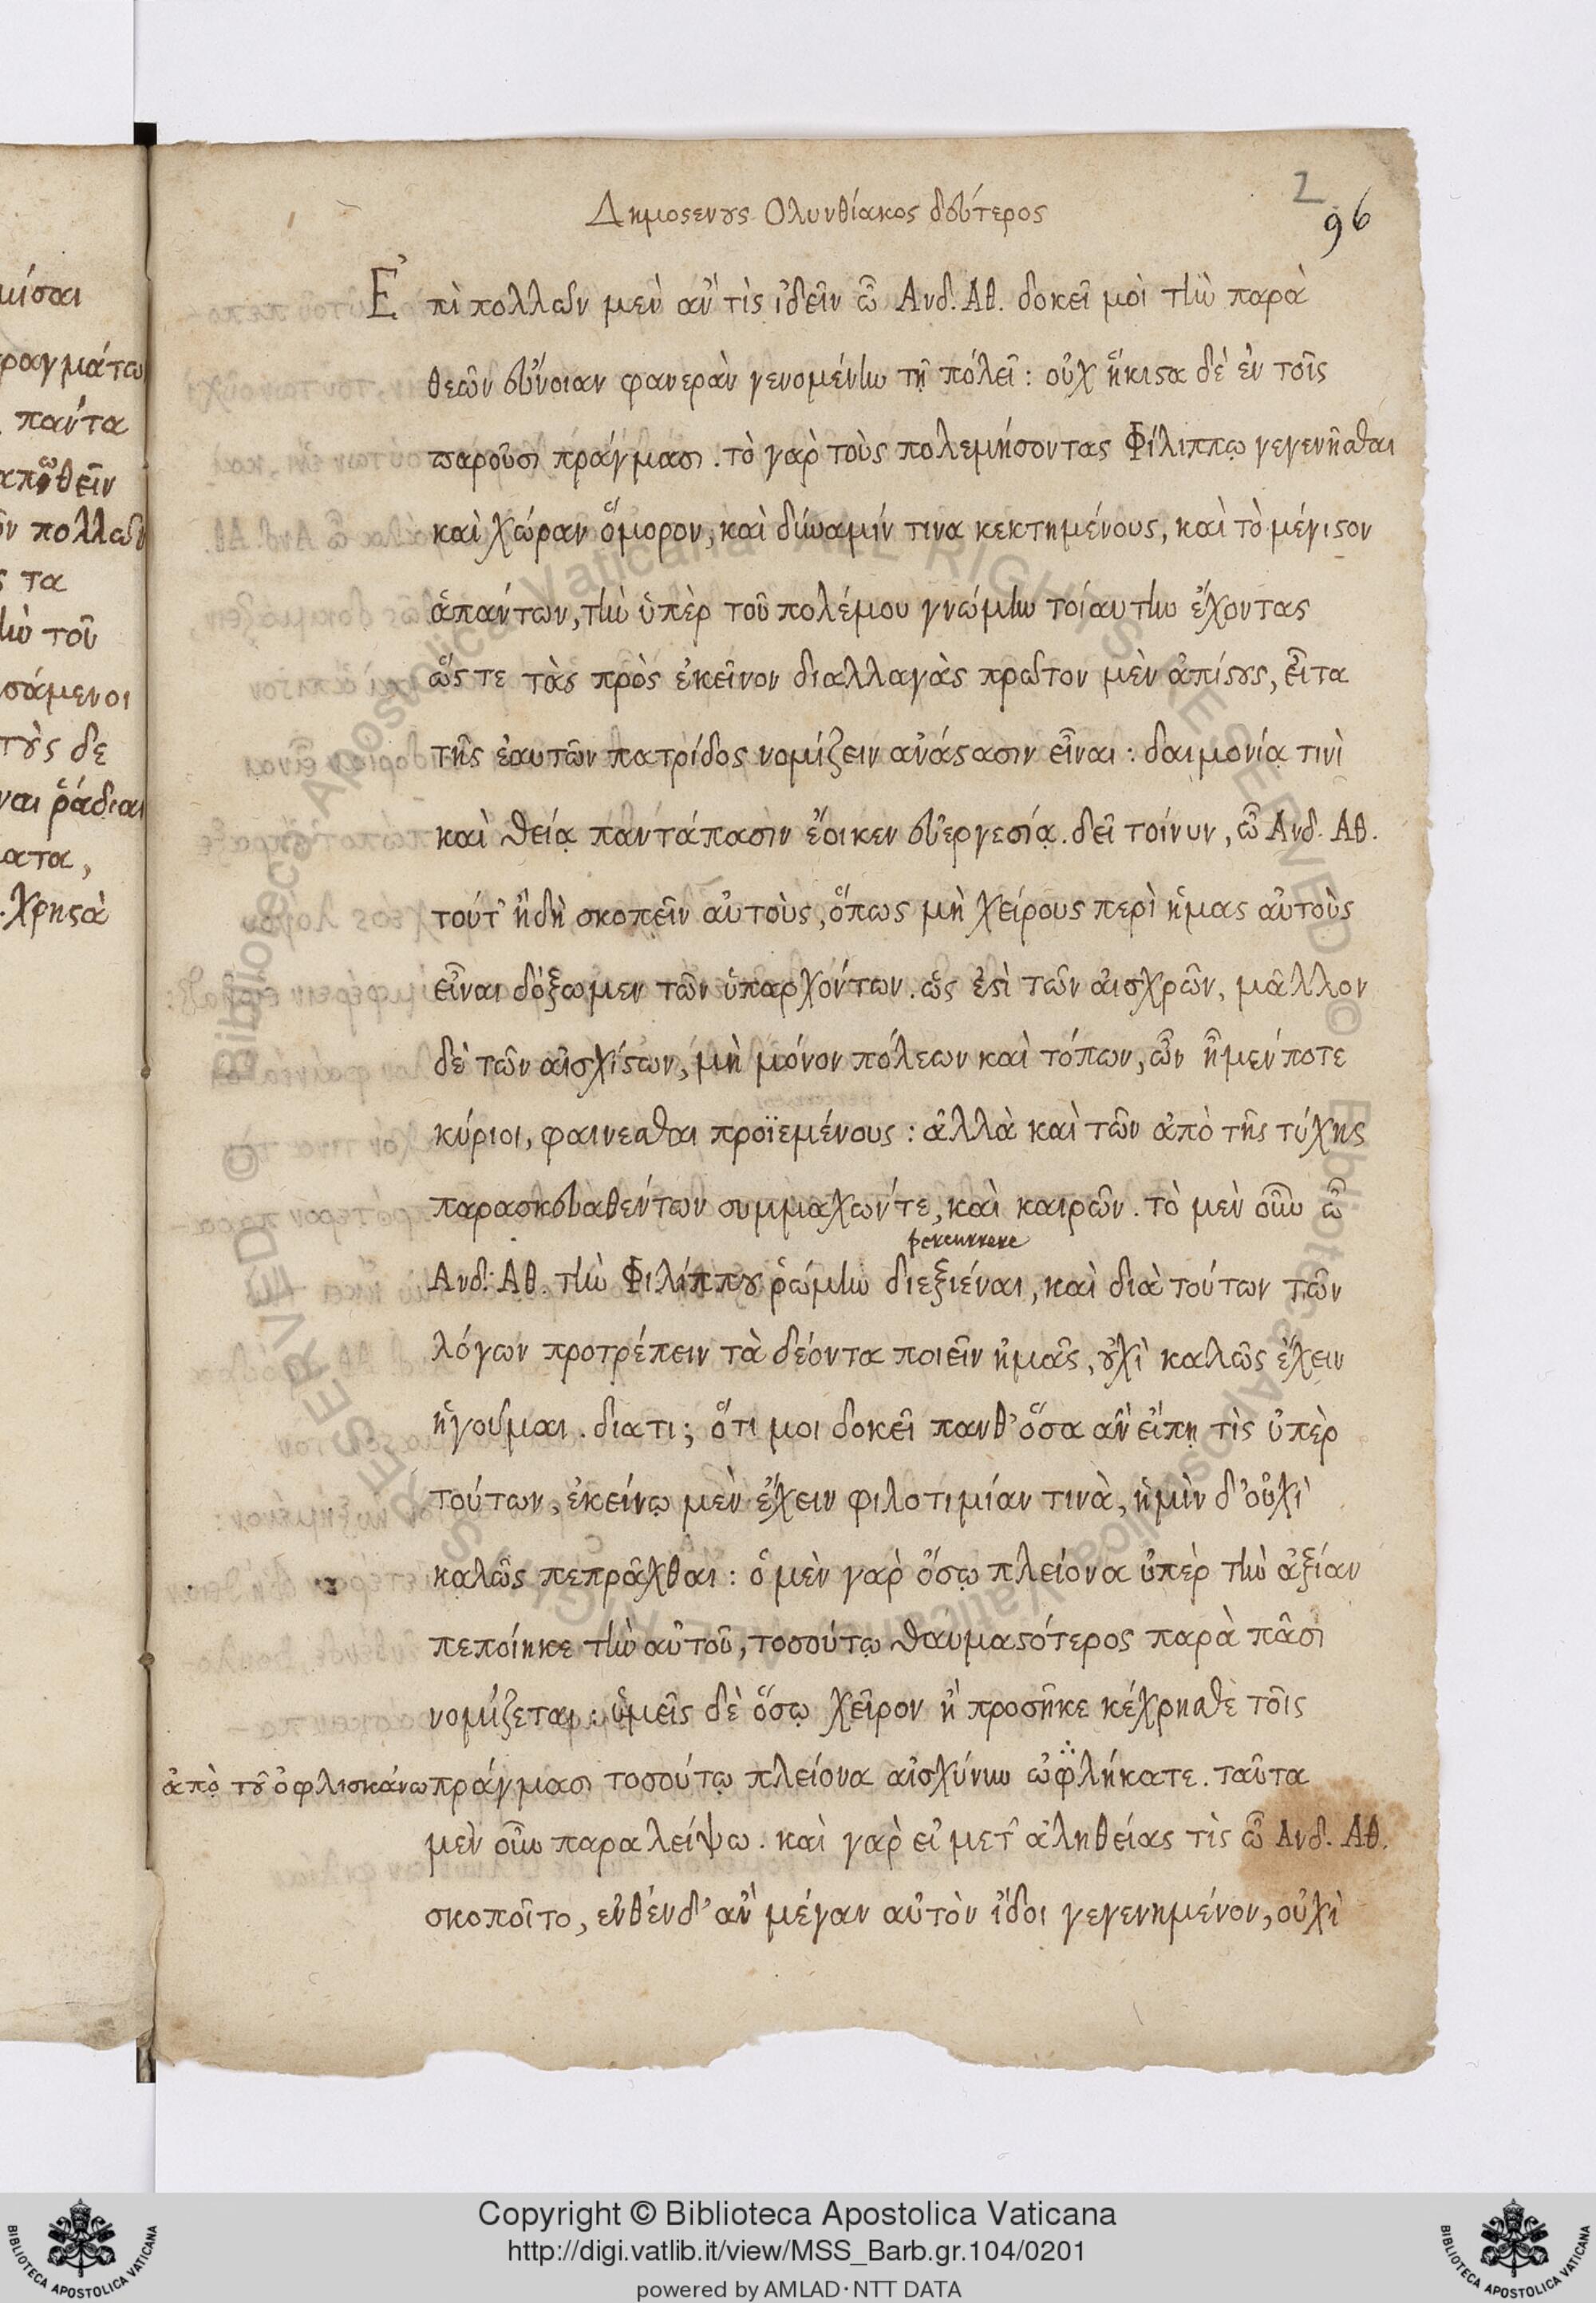 μίσαι
ραγμάτω
παντα
απωθεῖν
ν πολλῶν
ς τα
ὴν τοῦ
σάμενοι
τοὺς δε
ναι ῥάδιαι
ατα,
. χρηστὰ
2
96
Δημοσθενους Ολυνθίακος δεύτερος
Ἐπὶ πολλῶν μεν αν τὶς ἰδεῖν ὦ Ανδ. Αθ. δοκεῖ μοὶ τὴν παρὰ
θεῶν εὔνοιαν φανερὰν γενομένην τῇ πόλεῖ : οὐχ ἥκιστα δὲ ἐν τοῖς
παροῦσι πράγμασι . τὸ γαρ τοὺς πολεμήσοντας Φίλιππῳ γεγενῆσθαι
καὶ χώραν ὅμορον, καὶ δύναμίν τινα κεκτημένους, καὶ τὸ μέγιστον
ἁπαντων, τὴν ὑπὲρ τοῦ πολέμου γνώμην τοίαυτην ἔχοντας
ὥς τε τὰς πρὸς ἐκεῖνον διαλλαγὰς πρῶτον μὲν ἀπίστους, εἶτα
τῆς ἑαυτῶν πατρίδος νομίζειν ανάστασιν εἶναι : δαιμονίᾳ τινὶ
καὶ θείᾳ παντάπασιν ἔοικεν εὐεργεσίᾳ . δεῖ τοίνυν, ὦ Ανδ. Αθ.
τούτ᾽ ἤδη σκοπεῖν αὐτοὺς, ὅπως μὴ χείρους περὶ ἡμας αὐτοὺς
εἶναι δόξωμεν τῶν ὑπαρχόντων . ὥς ἐστὶ τῶν αἰσχρῶν, μᾶλλον
δὲ τῶν αἰσχίστων, μὴ μόνον πόλεων καὶ τόπων, ὧν ἦμεν ποτε
κύριοι, φαινεσθαι προϊεμένους : ἀλλὰ καὶ τῶν ἀπὸ τῆς τύχης
παρασκευασθέντων συμμαχων τε, καὶ καιρῶν . τὸ μεν οὖν ὦ
percurrere
Ανδ. Αθ. τὴν Φιλίππου ῥώμην διεξιέναι, καὶ διὰ τούτων τῶν
λόγων προτρέπειν τὰ δέοντα ποιεῖν ἡμᾶς, οὐχὶ καλῶς ἔχειν
ἡγοῦμαι . διατι; ὅτι μοι δοκεῖ πανθ᾽ ὅσα αν εἴπῃ τὶς ὑπὲρ
τούτων, ἐκείνῳ μεν ἔχειν φιλοτιμίαν τινὰ, ἡμῖν δ᾽ οὐχὶ
καλῶς πεπρᾶχθαι : ὁ μεν γαρ ὅσῳ πλείονα ὑπὲρ τὴν ἀξίαν
πεποίηκε τὴν αὑτοῦ, τοσούτῳ θαυμαστότερος παρὰ πᾶσι
νομίζεται : ὑμεῖς δὲ ὅσῳ χεῖρον ἢ προσῆκε κέχρησθὲ τοῖς
ἀπὸ τοῦ ὀφλισκάνω πράγμασι τοσούτῳ πλείονα αἰσχύνην ὠφλήκατε . ταῦτα
μεν οὖν παραλείψω . καὶ γαρ εἰ μετ᾽ αληθείας τὶς ὦ Ανδ. Αθ.
σκοποῖτο, ενθένδ᾽ αν μέγαν αὐτὸν ἴδοι γεγενημένον, οὐχὶ
Copyright © Biblioteca Apostolica Vaticana
http://digi.vatlib.it/view/MSS_Barb.gr.104/0201
powered by AMLAD·NTT DATA